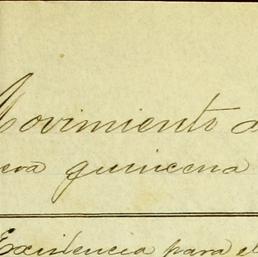 Movimiento d
cva quincena
Existencia para el